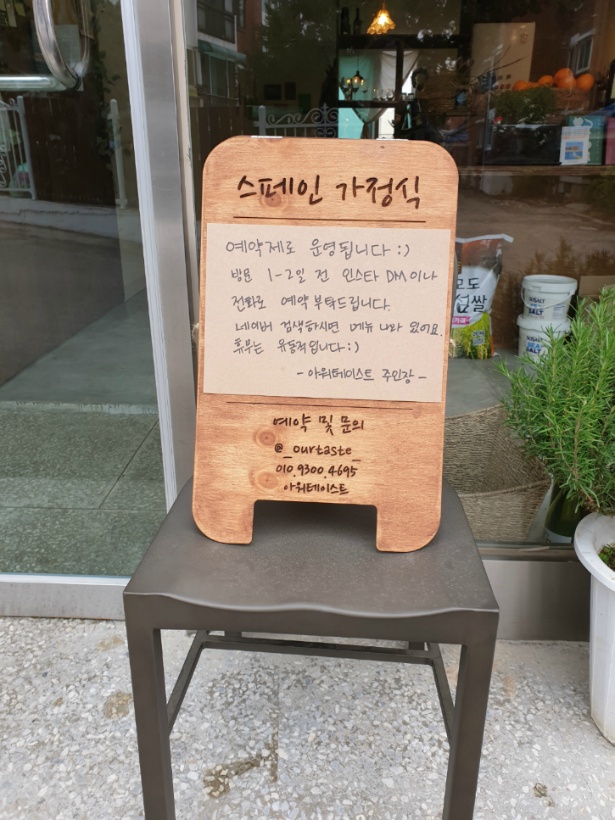 스페인 가정식
예약제로 운영됩니다:)
방문 1-2일 전 인스타 DM이나
전화로 예약 부탁드립니다.
네이버 검색하시면 메뉴 나와 있어요.
휴무는 유동적입니다:)
- 아워테이스트 주인장 -
예약 및 문의
@_ourtaste_
010.9300.4695
아워테이스트
SALT
SALT